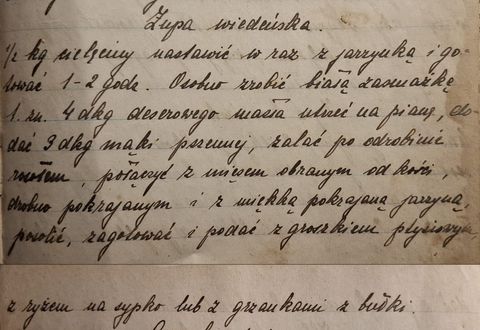 Zupa wiedeńska.
½ kg cielęciny nastawić w raz z jarzynką i go-
tować 1-2 godz. Osobno zrobić białą zasmażkę
t. zn. 4 dkg deserowego masła utrzeć na pianę, do-
dać 3 dkg mąki pszennej, zalać po odrobinie
rosołem, połączyć z mięsem obranym od kości,
drobno pokrajanym i z miękką pokrajaną jarzyną,
posolić, zagotować i podać z groszkiem ptysiowym,
z ryżem na sypko lub z grzankami z bułki.